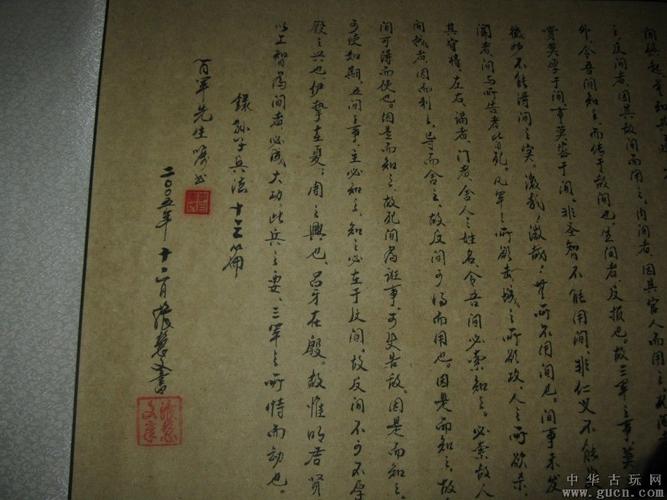 间俱起莫知其
反间者、因其敌间而用之。内间者、因其官人而用之。
外令吾间知之、而传于敌间也。生间者、反报也。故三军之事、莫
赏莫厚于间、事莫密于间、非圣智不能用间、非仁义不能
微妙不能得间之实。微哉、微哉、无所不用间也。间事未发
闻者、间与所告者皆死。凡军之所欲击、城之所欲攻、人之所欲杀
其守将、左右、谒者、门者、舍人之姓名、令吾间必索知之。必索敌人
间我者、因而利之、导而舍之、故反间可得而用也。因是而知之、故
间可得而使也。因是而知之、故死间为诳事、可使告敌。因是而知
可使如期。五间之事、主必知之、知之必在于反间、故反间不可不厚
殷之兴也、伊挚在夏；周之兴也、吕牙在殷。故惟明君贤
以上智为间者、必成大功。此兵之要、三军之所恃而动也。
录孙子兵法十三篇
百军先生嘱书
二00五年十二月张慧文书
中华古玩网
www.gucn.com